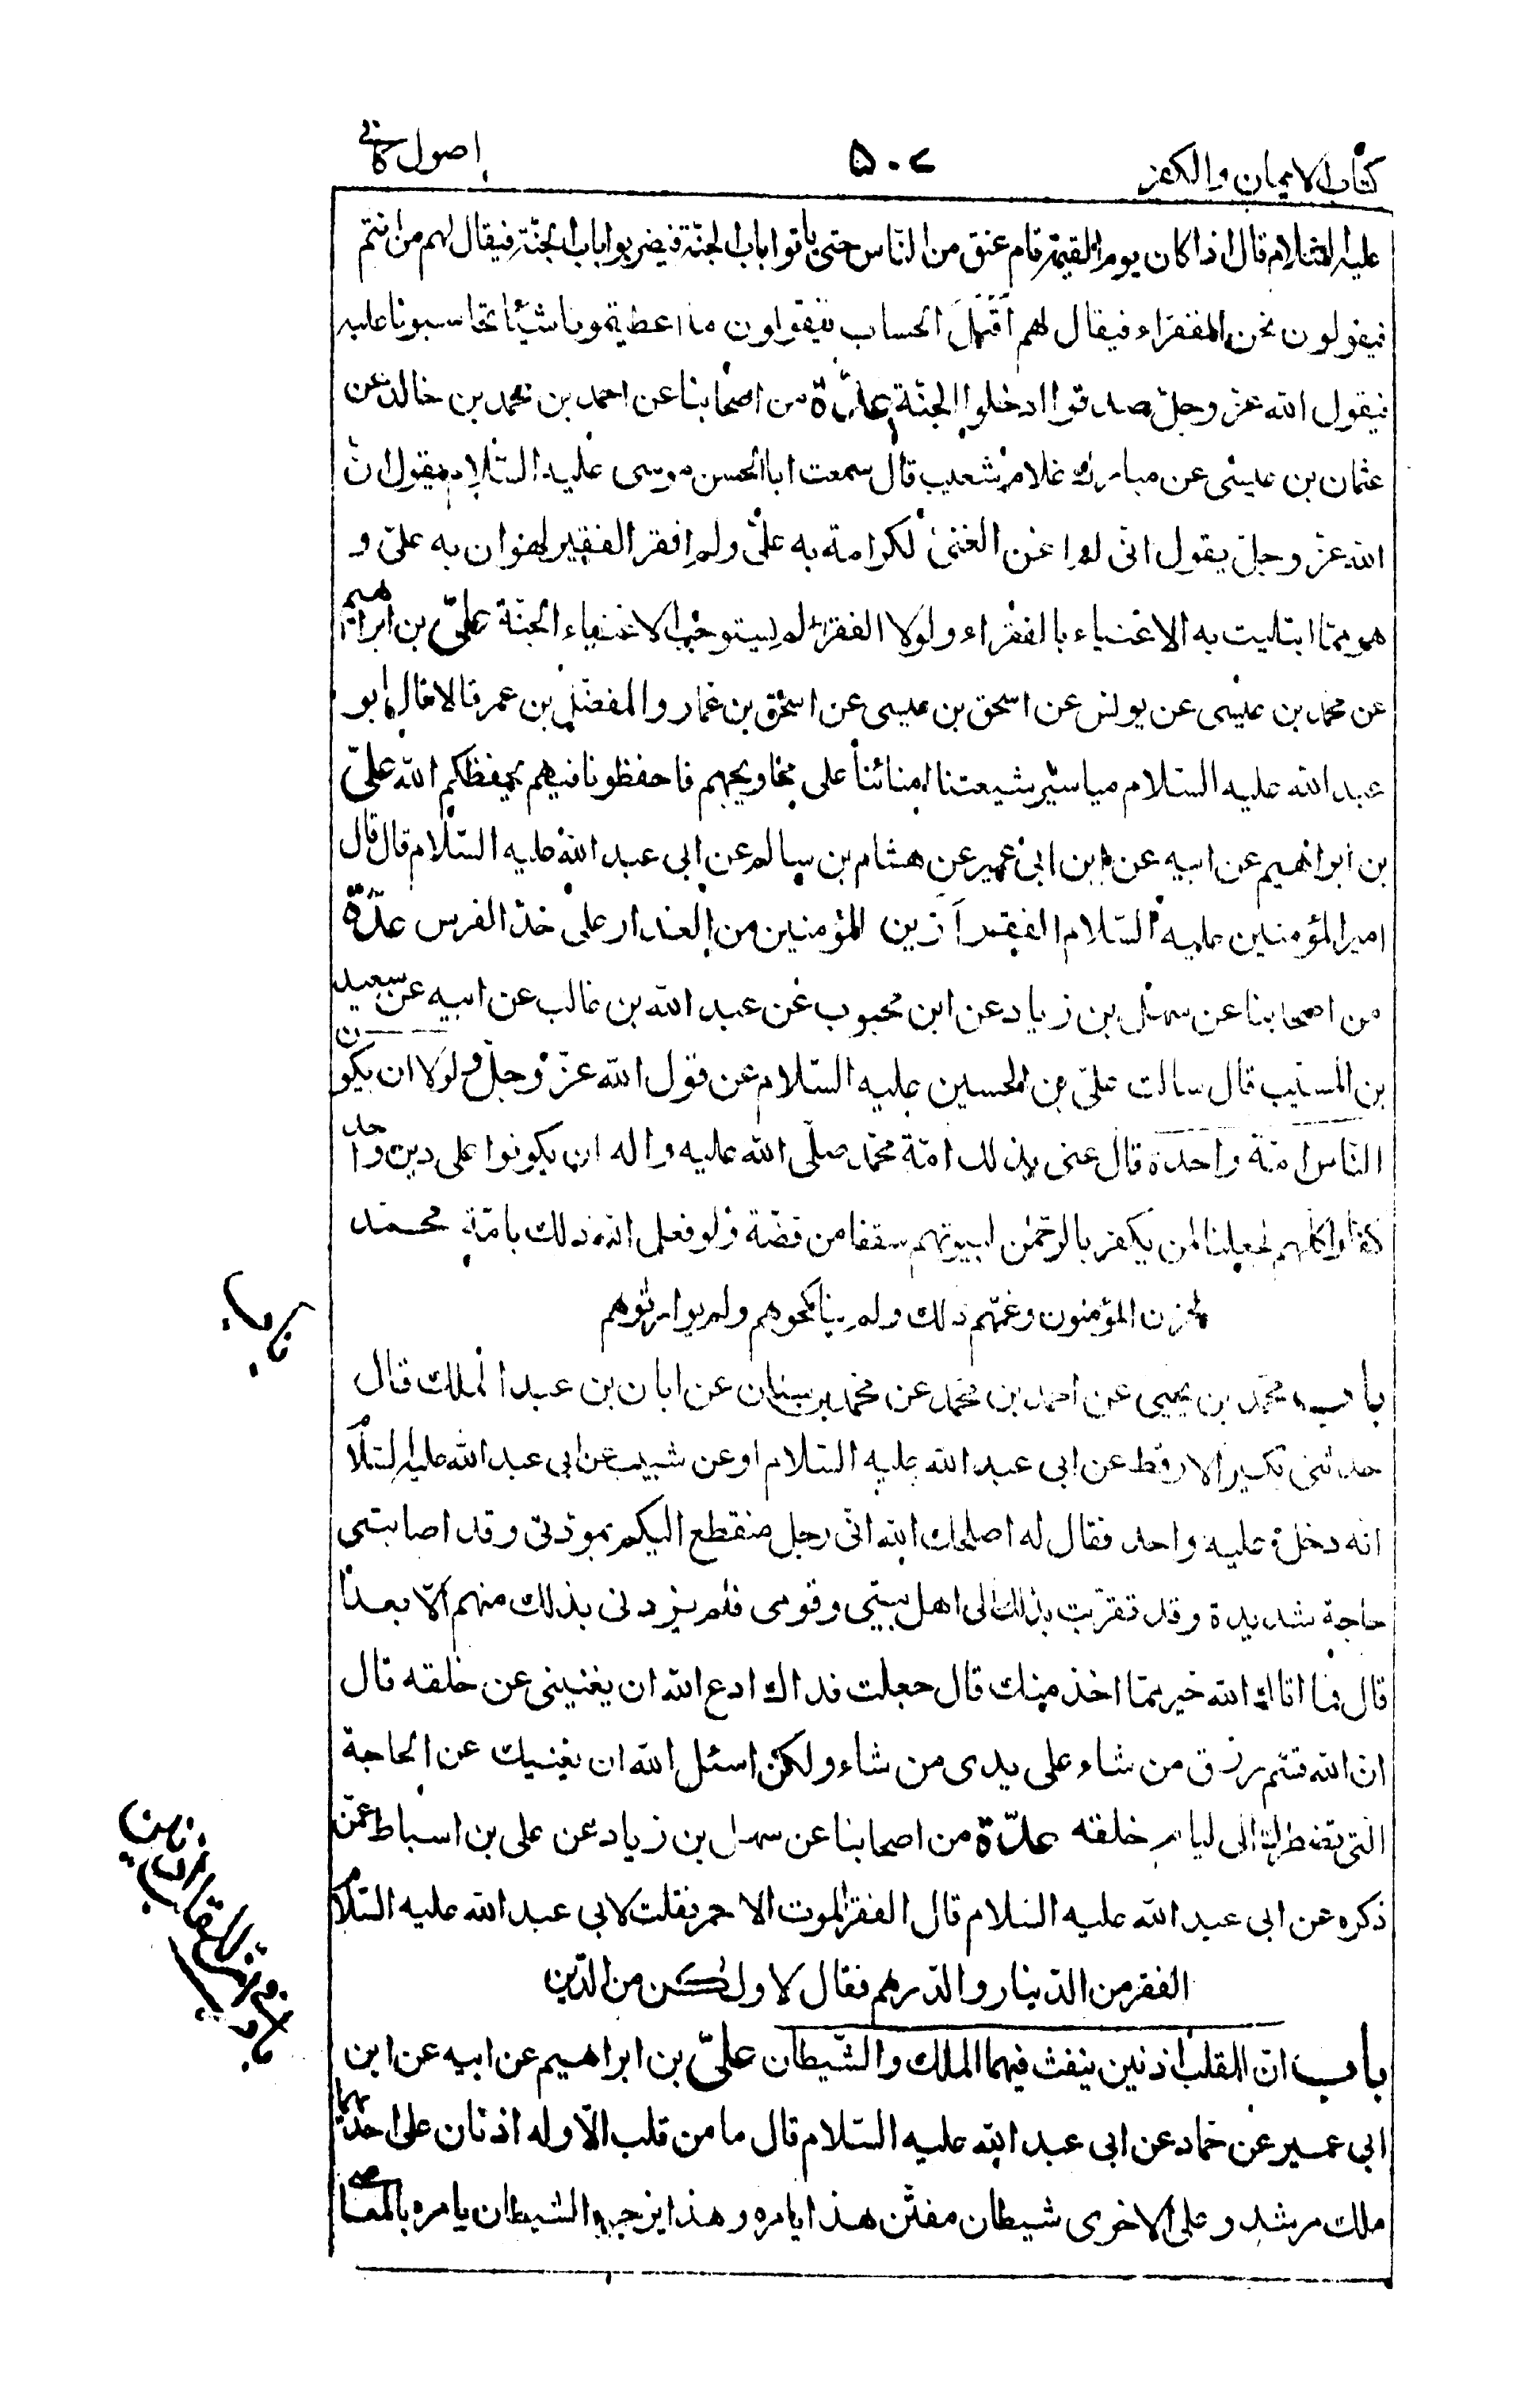 كتاب الايمان والكفر
۵۰۲
اصول كافي
عليه السلام قال اذا كان يوم القيمة قام عنق من الناس حتى ياتوا باب الجنّة فيضربوا باب الجنّة فيقال لهم من انتم
فيقولون نحن الفقراء فيقال لهم أقبل الحساب فيقولون ما اعطيتمونا شيئا تحاسبونا عليه
فيقول الله عز وجلّ صدقوا ادخلوا الجنّة عدّة من اصحابنا عن احمد بن محمد بن خالد عن
عثمان بن عيسى عن مبارك غلام شعيب قال سمعت ابا الحسن موسى عليه السّلام يقول ان
الله عزّ وجلّ يقول انّى لم اغن الغنىّ لكرامة به علىّ ولم افقر الفقير لهوان به علىّ و
هو ممّا ابتليت به الاغنياء بالفقراء ولولا الفقراء لم يستوجب الاغنياء الجنّة علىّ بن ابراهيم
عن محمد بن عيسى عن يونس عن اسحق بن عيسى عن اسحق بن عمار والمفضّل بن عمر قالا قال ابو
عبد الله عليه السّلام مياسير شيعتنا امنائنا على محاويجهم فاحفظونا فيهم يحفظكم الله علىّ
بن ابراهيم عن ابيه عن ابن ابى عمير عن هشام بن سالم عن ابى عبد الله عليه السّلام قال قال
امير المؤمنين عليه السّلام الفقر أزين المؤمنين من العذار على خدّ الفرس عدّة
من اصحابنا عن سهل بن زياد عن ابن محبوب عن عبد الله بن غالب عن ابيه عن سعيد
بن المسيّب قال سالت علىّ بن الحسين عليه السّلام عن قول الله عزّ وجلّ ولولا ان يكون
النّاس امّة واحدة قال عنى بذلك امّة محمّد صلّى الله عليه واله ان يكونوا على دين واحد
كفارا كلّهم لجعلنا لمن يكفر بالرحمٰن لبيوتهم سقفا من فضّة ولو فعل الله ذلك بامّة محمد
لحزن المؤمنون وغمّهم ذلك ولم يناكحوهم ولم يوارثوهم
باب
باب محمّد بن يحيى عن احمد بن محمّد عن محمّد بن سنان عن ابان بن عبد الملك قال
حدثنى بكير الارقط عن ابى عبد الله عليه السّلام او عن شبيب عن ابى عبد الله عليه السّلام
انه دخل عليه واحد فقال له اصلحك الله انّى رجل منقطع اليكم بمودّتى وقد اصابتنى
حاجة شديدة وقد تقربت بذلك الى اهل بيتى وقومى فلم يزدنى بذلك منهم الّا بعدا
قال فما اتاك الله خير ممّا اخذ منك قال جعلت فداك ادع الله ان يغنينى عن خلقه قال
ان الله قسّم رزق من شاء على يدى من شاء ولكن اسئل الله ان يغنيك عن الحاجة
التى تضطرك الى ليام خلقه عدّة من اصحابنا عن سهل بن زياد عن على بن اسباط عمّن
ذكره عن ابى عبد الله عليه السلام قال الفقر الموت الاحمر فقلت لابى عبد الله عليه السّلام
الفقر من الدّينار والدّرهم فقال لا ولكن من الدّين
باب انّ للقلب اذنين ينفث فيهما الملك والشّيطان علىّ بن ابراهيم عن ابيه عن ابن
ابى عمير عن حماد عن ابى عبد الله عليه السّلام قال ما من قلب الّا وله اذنان على احديهما
ملك مرشد وعلى الاخرى شيطان مفتّن هذا يامره وهذا يزجره الشيطان يامره بالمعاصى